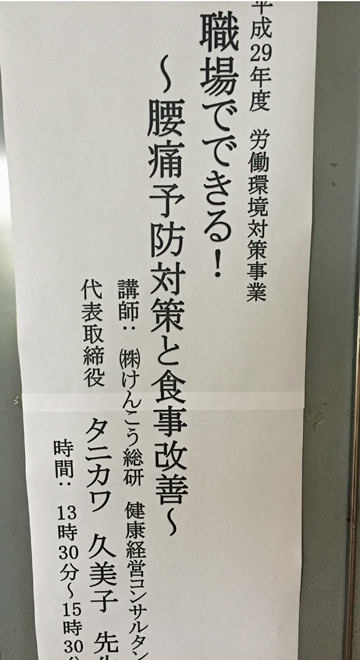 平成29年度 労働環境対策事業
職場でできる!
~腰痛予防対策と食事改善~
講師: ㈱けんこう総研 健康経営コンサルタン
代表取締役 タニカワ 久美子 先生
時間: 13時30分~15時30分